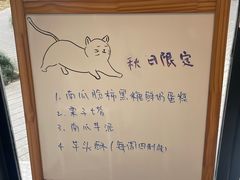 秋日限定
1. 南瓜脆柿黑糖鲜奶蛋糕
2. 栗子塔
3. 南瓜芋泥
4. 芋头酥(每周四制作)